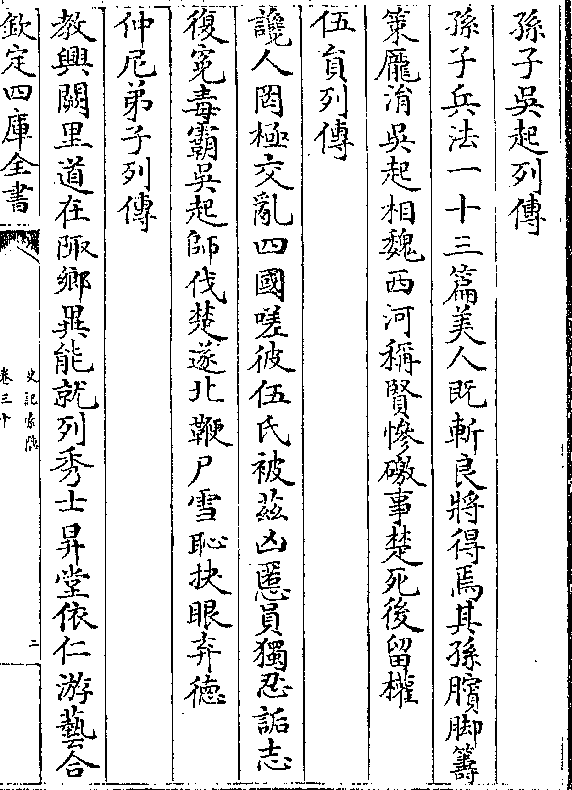 孫子吳起列傳
孫子兵法一十三篇美人既斬良將得焉其孫臏脚籌
策龐涓吳起相魏西河稱賢慘礉事楚死後留權
伍員列傳
讒人罔極交亂四國嗟彼伍氏被茲凶慝員獨忍詬志
復冤毒霸吳起師伐楚逐北鞭尸雪恥抉眼弃德
仲尼弟子列傳
教興闕里道在陬鄉異能就列秀士昇堂依仁游藝合
欽定四庫全書
史記索隱
卷三十
二